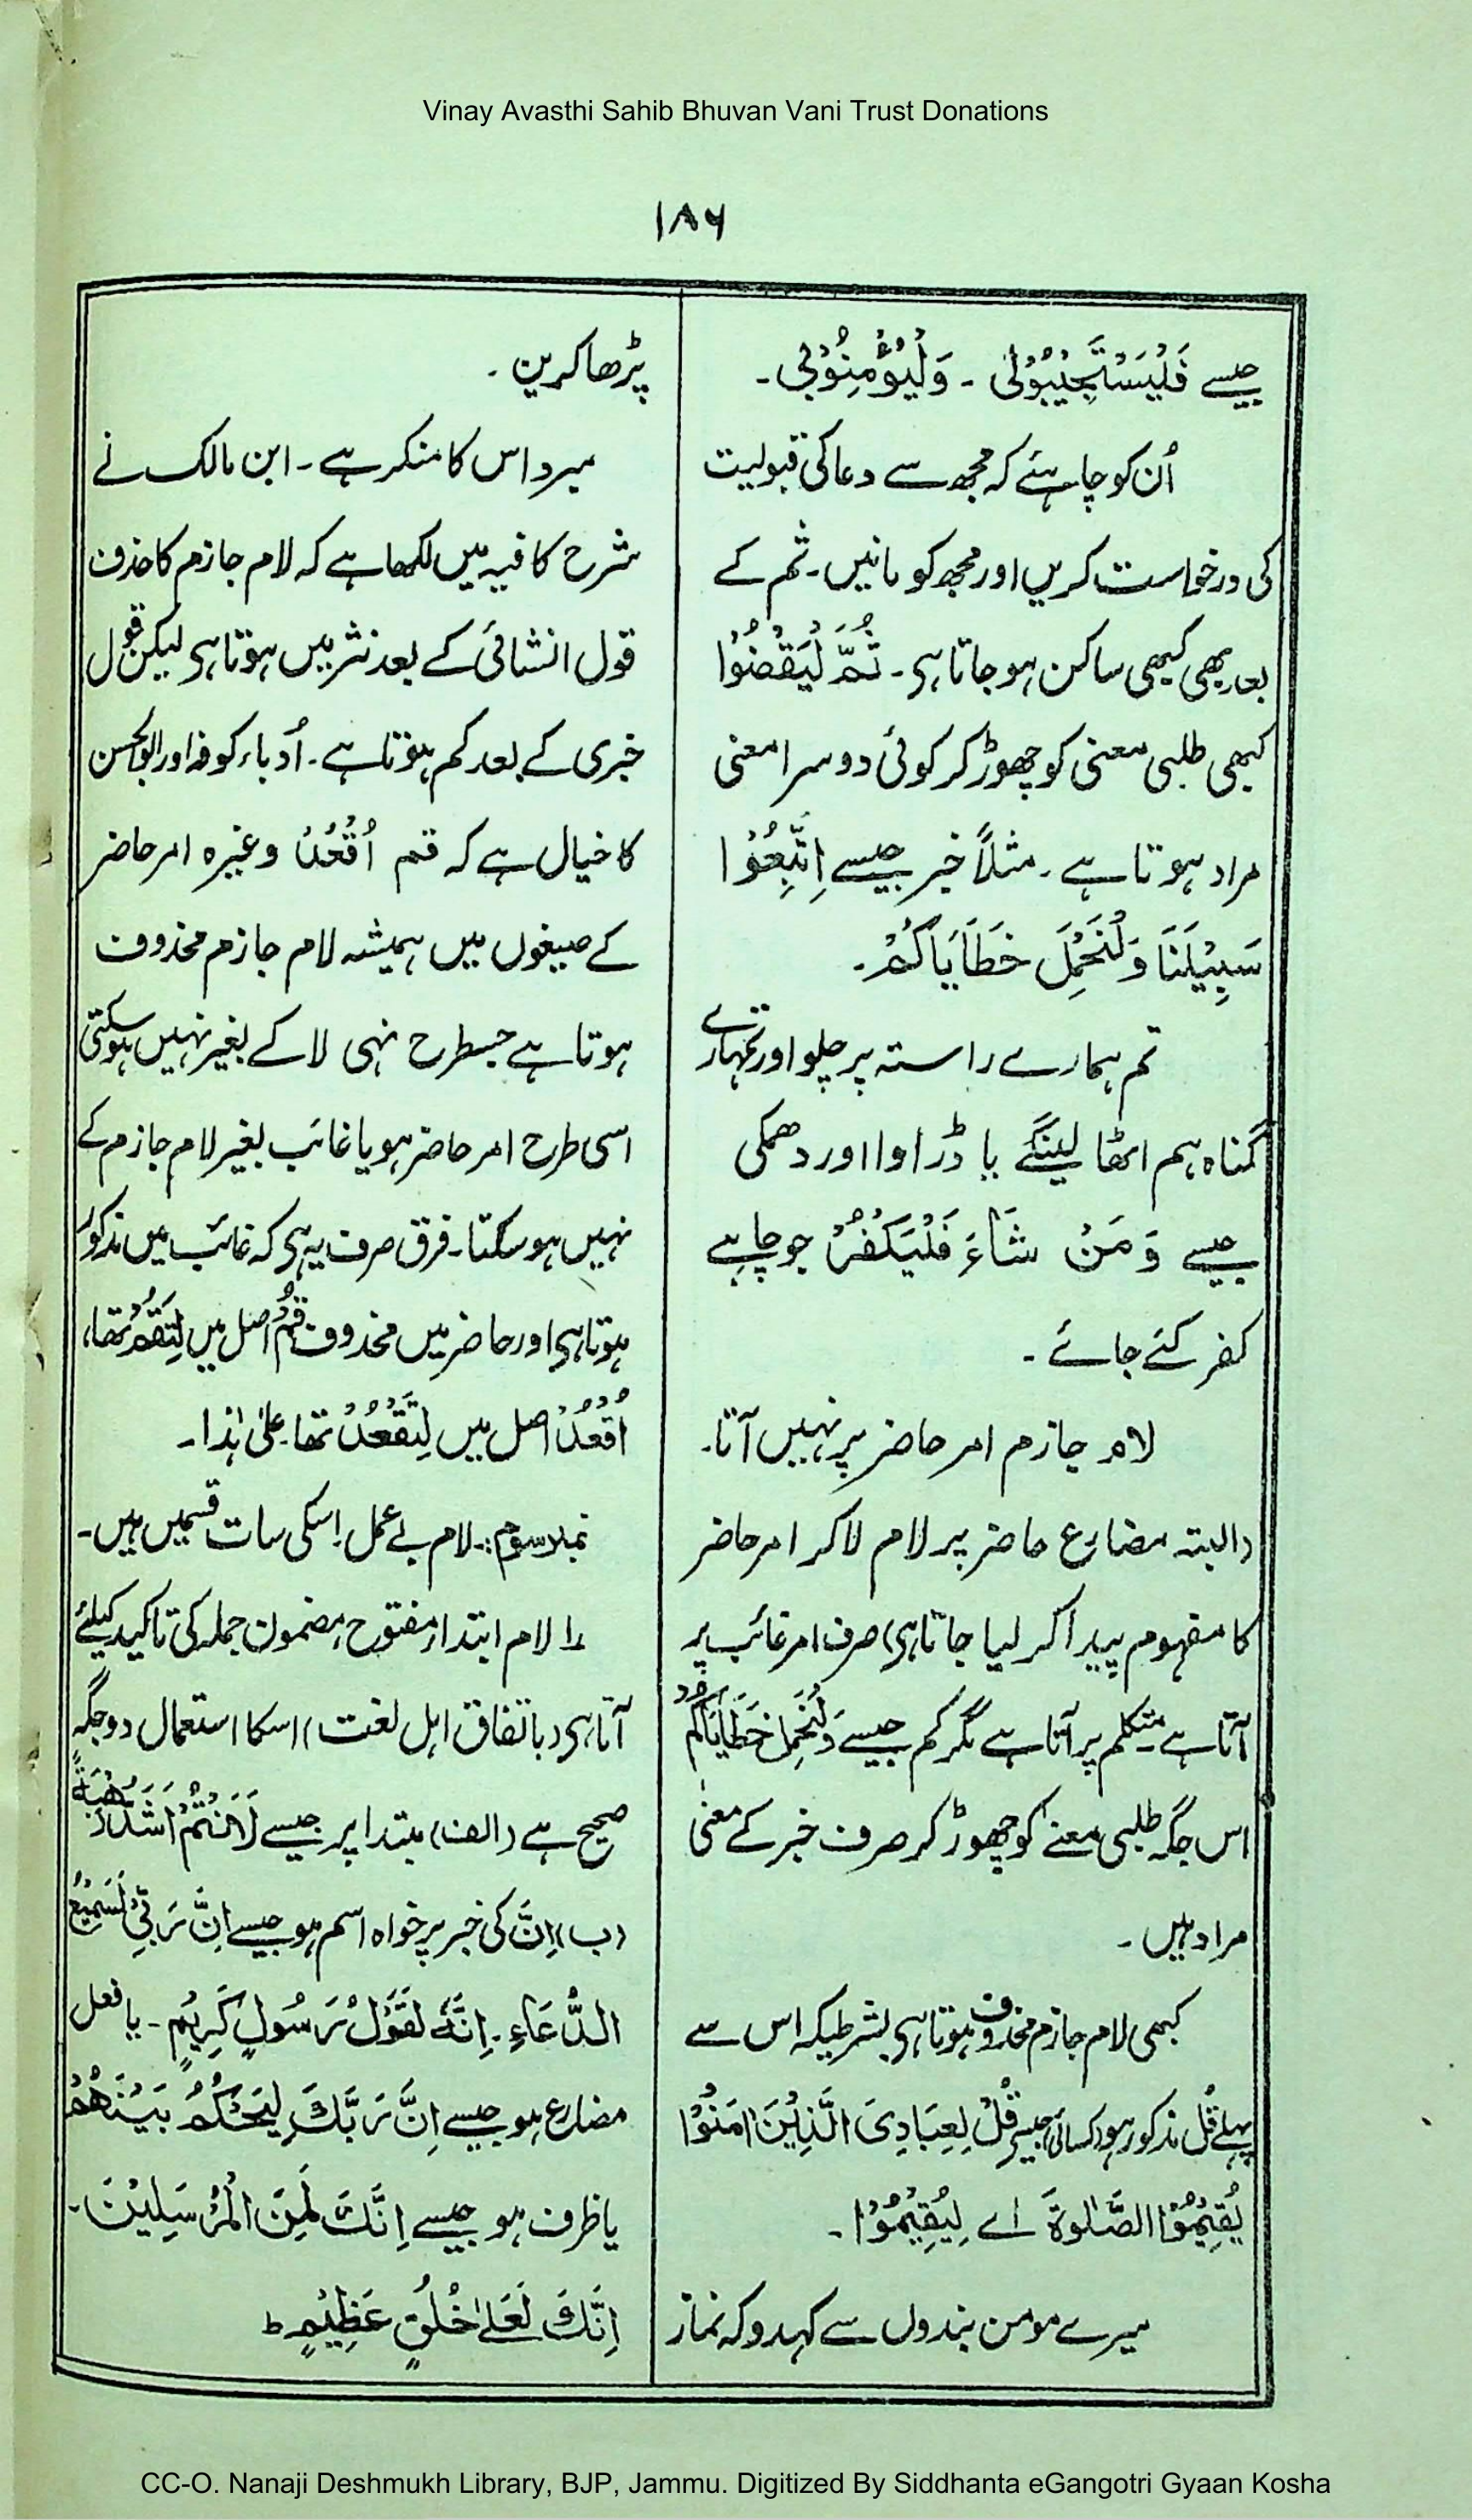 Vinay Avasthi Sahib Bhuvan Vani Trust Donations
۱۸۶
جیسے فَلْیَسْتَجِیْبُوْلِی ۔ وَلْیُؤْمِنُوْبِی ۔
اُن کو چاہئے کہ مجھ سے دعا کی قبولیت
کی درخواست کریں اور مجھ کو مانیں۔ ثم کے
بعد بھی کبھی ساکن ہو جاتا ہی۔ ثُمَّ لْیَقْضُوْا
کبھی طلبی معنی کو چھوڑ کر کوئی دوسرا معنی
مراد ہوتا ہے۔ مثلاً خبر جیسے اِتَّبِعُوْا
سَبِیْلَنَا وَلْنَحْمِلْ خَطَایَاکُمْ۔
تم ہمارے راستہ پر چلو اور تمہارے
گناہ ہم اٹھا لینگے یا ڈراوا اور دھمکی
جیسے وَمَنْ شَاءَ فَلْیَکْفُرْ جو چاہے
کفر کئے جائے ۔
لام جازم امر حاضر پر نہیں آتا۔
(البتہ مضارع حاضر پر لام لا کر امر حاضر
کا مفہوم پیدا کر لیا جاتا ہی) صرف امر غائب پر
آتا ہے متکلم پر آتا ہے مگر کم جیسے وَلْنَحْمِلْ خَطَایَاکُمْ
اس جگہ طلبی معنے کو چھوڑ کر صرف خبر کے معنی
مراد ہیں ۔
کبھی لام جازم محذوف ہوتا ہی بشرطیکہ اس سے
پہلے قُل مذکور ہو (کسائی) جیسے قُلْ لِعِبَادِیَ الَّذِیْنَ اٰمَنُوْا
یُقِیْمُوْا الصَّلٰوۃَ اے لِیُقِیْمُوْا ۔
میرے مومن بندوں سے کہدو کہ نماز
پڑھا کریں ۔
مبرد اس کا منکر ہے۔ ابن مالک نے
شرح کافیہ میں لکھا ہے کہ لام جازم کا حذف
قول انشائی کے بعد نثر میں ہوتا ہی لیکن قول
خبری کے بعد کم ہوتا ہے۔ اُدباء کوفہ اور ابو الحسن
کا خیال ہے کہ قم اُقْعُدْ وغیرہ امر حاضر
کے صیغوں میں ہمیشہ لام جازم محذوف
ہوتا ہے جسطرح نہی لا کے بغیر نہیں ہوسکتی
اسی طرح امر حاضر ہو یا غائب بغیر لام جازم کے
نہیں ہو سکتا۔ فرق صرف یہ ہی کہ غائب میں مذکور
ہوتا ہی اور حاضر میں محذوف قُمْ اصل میں لِتَقُمْ تھا،
اُقْعُدْ اصل میں لِتَقْعُدْ تھا۔ علیٰ ہٰذا۔
نمبر سوم:۔ لام بے عمل اِسکی سات قسمیں ہیں۔
۱ لام ابتداء مفتوح مضمون جملہ کی تاکید کیلئے
آتا ہی (باتفاق اہل لغت) اسکا استعمال دو جگہ
صحیح ہے (الف) مبتدا پر جیسے لَاَنْتُمْ اَشَدُّ رَهْبَةً
(ب) اِنَّ کی خبر پر خواہ اسم ہو جیسے اِنَّ رَبِّیْ لَسَمِیْعُ
الدُّعَاءِ۔ اِنَّهٗ لَقَوْلُ رَسُوْلٍ کَرِیْمٍ ۔ یا فعل
مضارع ہو جیسے اِنَّ رَبَّکَ لَیَحْکُمُ بَیْنَهُمْ
یا ظرف ہو جیسے اِنَّکَ لَمِنَ الْمُرْسَلِیْنَ ۔
اِنَّکَ لَعَلٰی خُلُقٍ عَظِیْمٍ ط
CC-O. Nanaji Deshmukh Library, BJP, Jammu. Digitized By Siddhanta eGangotri Gyaan Kosha